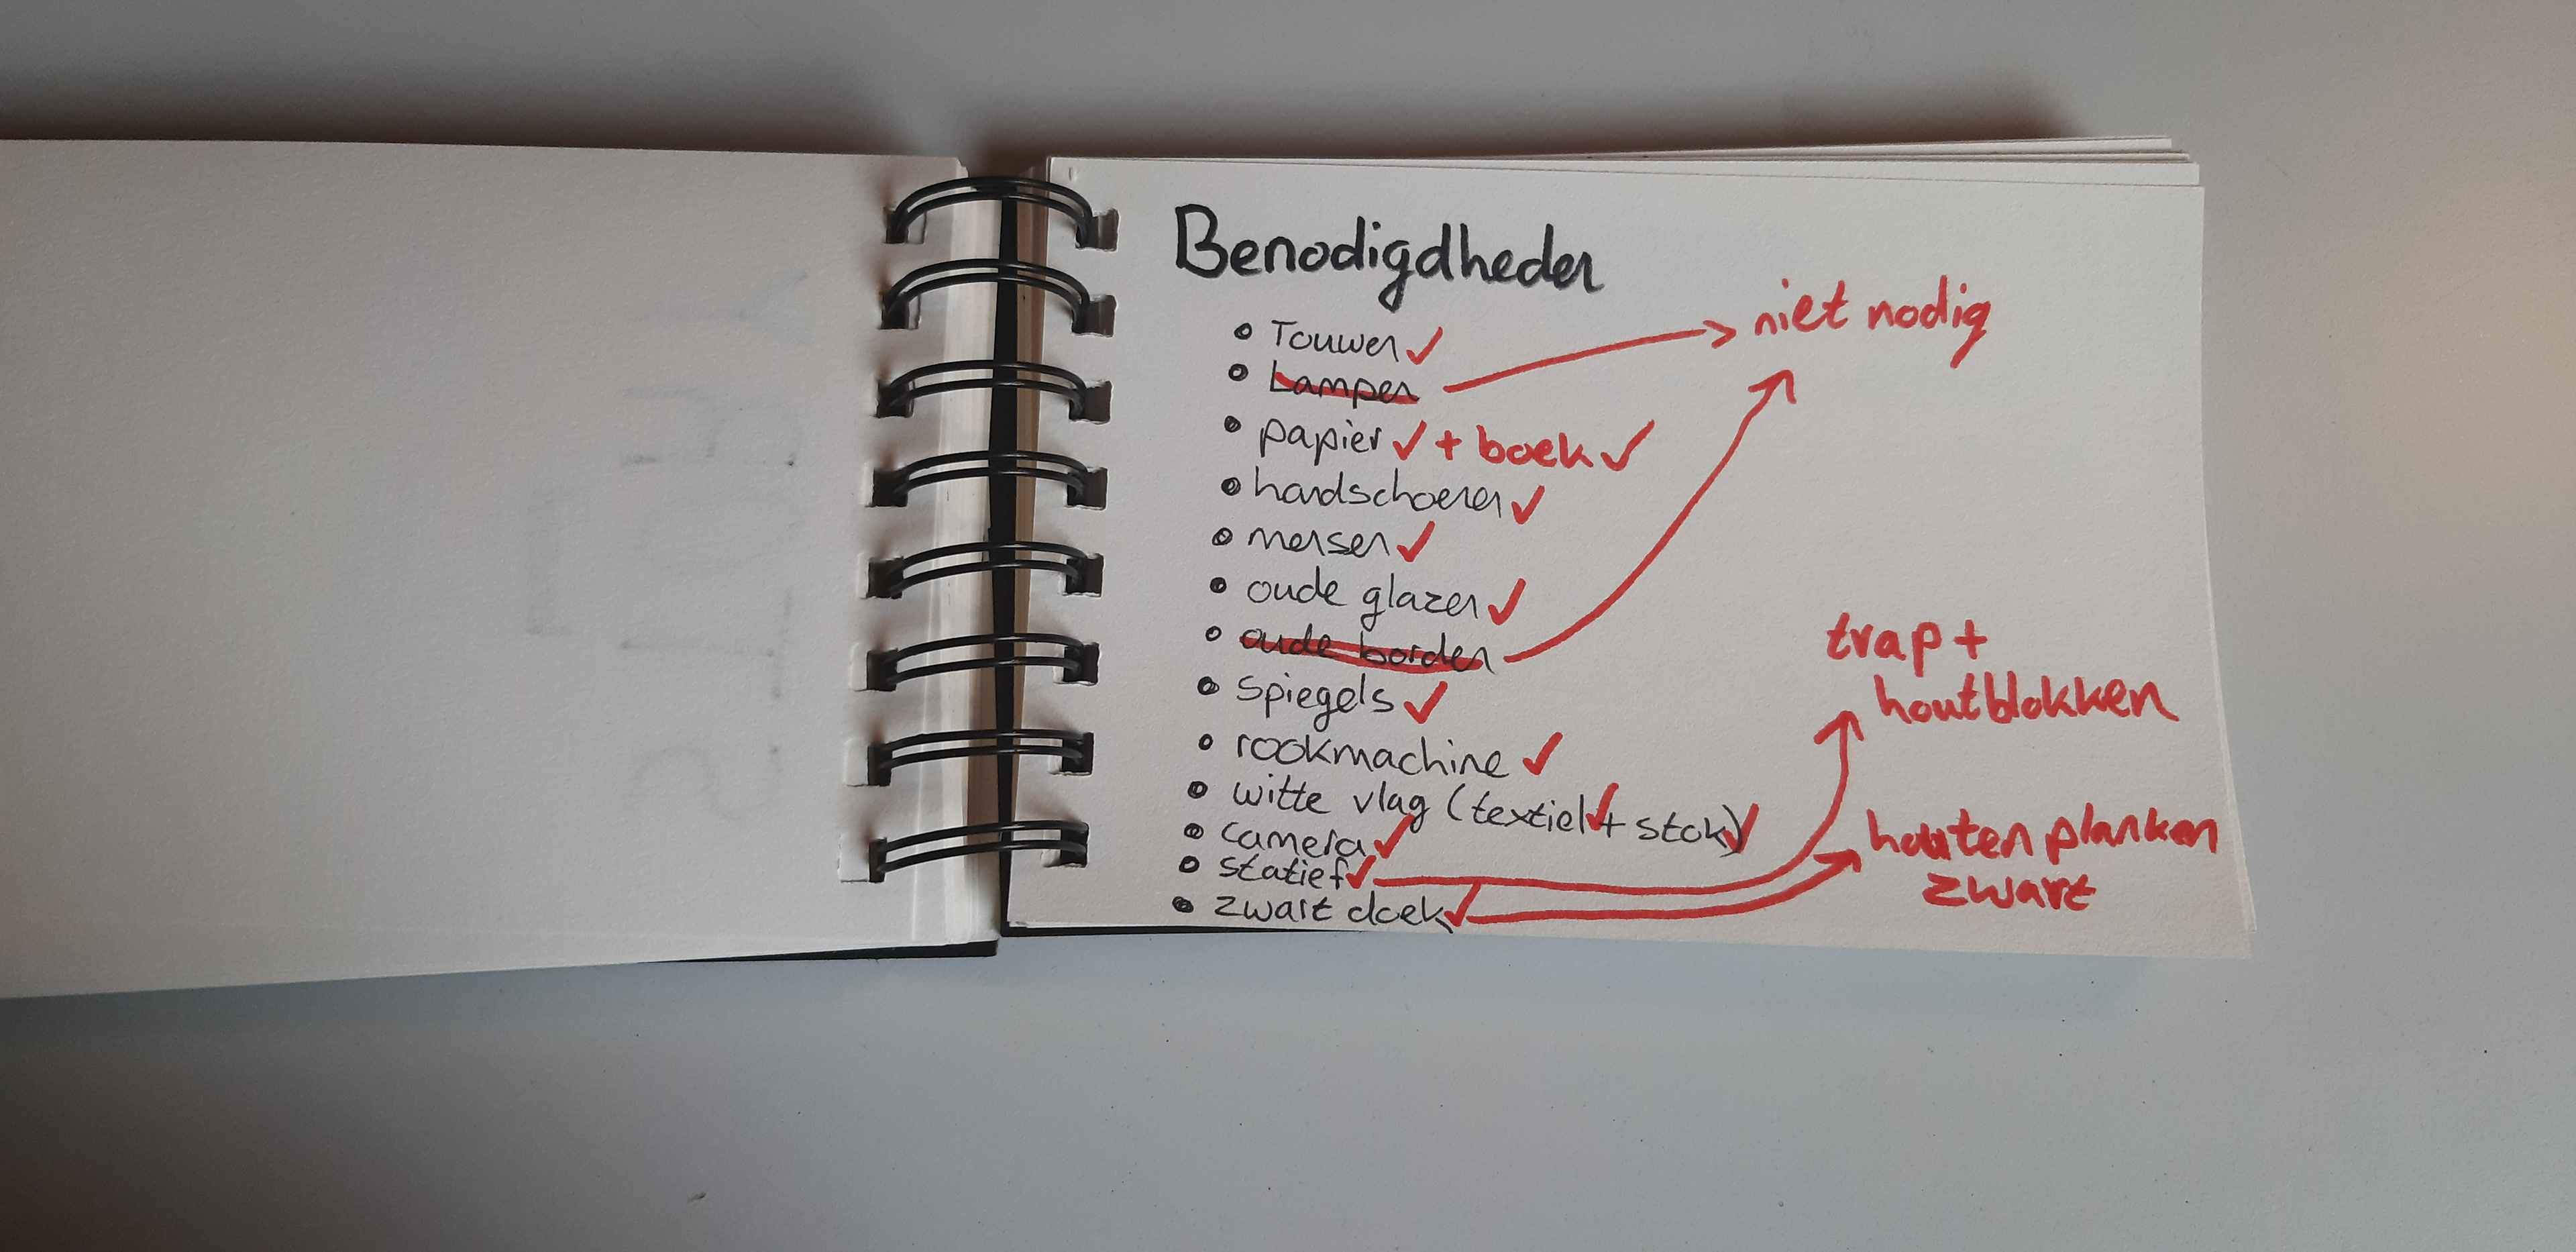 Benodigdheden
Touwen
Lampen
niet nodig
papier + boek
handschoenen
mensen
oude glazen
oude borden
spiegels
rookmachine
witte vlag (textiel + stok)
camera
statief
zwart doek
trap +
houtblokken
houten planken
zwart